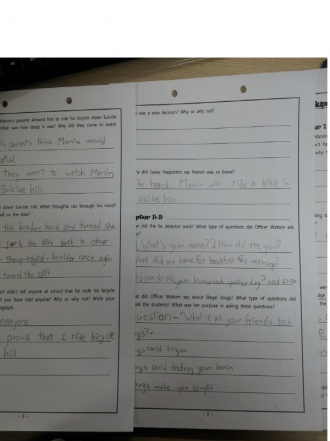 Marvin's parents allowed him to ride his bicycle down Suicide
other saw how steep it was? Why did they come to watch
parents think Marvin would
eful
they want to watch Marvin
Suicide hill.
down Suicide Hill. What thoughts ran through his mind?
elf on the bike?
the breaks hard and turned the
the bike back to other
once again
toward the cliff
didn't tell anyone at school that he rode his bicycle
you have told anyone? Why or why not? Write your
agraph.
everyone
proud that I ride bicycle
hill.
- 2 -
t was a wise decision? Why or why not?
y did Casey Happleton say Marvin was so brave?
he heard Marvin will ride a bike in
uicide hill.
did the lie detector work? What type of questions did Officer Watson ask
What's your name? How did are you?
What did you have for breakfast this morning?
do your homework yesterday? and so on
at did Officer Watson say about illegal drugs? What type of questions did
ask the students? What was her purpose in asking these questions?
uestion - "What if all your friends took
ugs?"
ugs could kill you
ugs could destroy your brain
drugs make you stupid
- 3 -